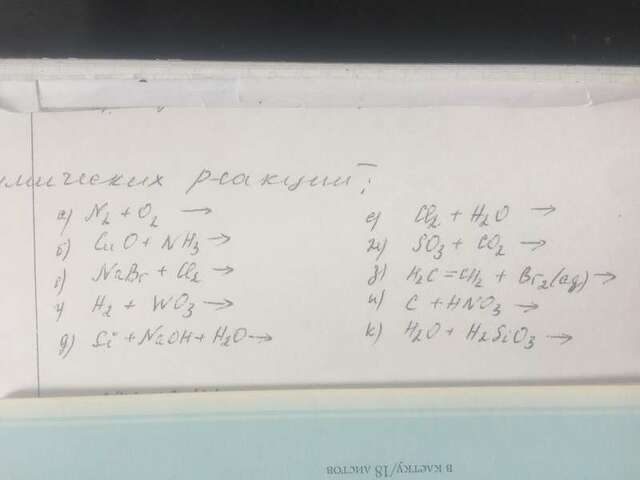 мических реакций:
а) N2 + O2 →
б) CuO + NH3 →
в) NaBr + Cl2 →
г) H2 + WO3 →
д) Si + NaOH + H2O →
е) Cl2 + H2O →
ж) SO3 + CO2 →
з) H2C=CH2 + Br2(aq) →
и) C + HNO3 →
к) H2O + H2SiO3 →
в клетку/18 листов